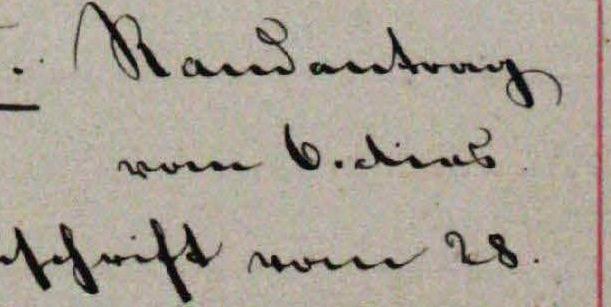 . Randantrag
vom 6. dies
schrift vom 28.